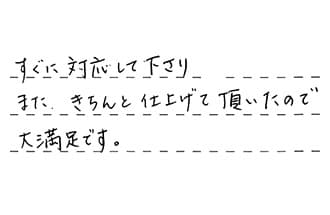 すぐに対応して下さり
また、きちんと仕上げて頂いたので
大満足です。